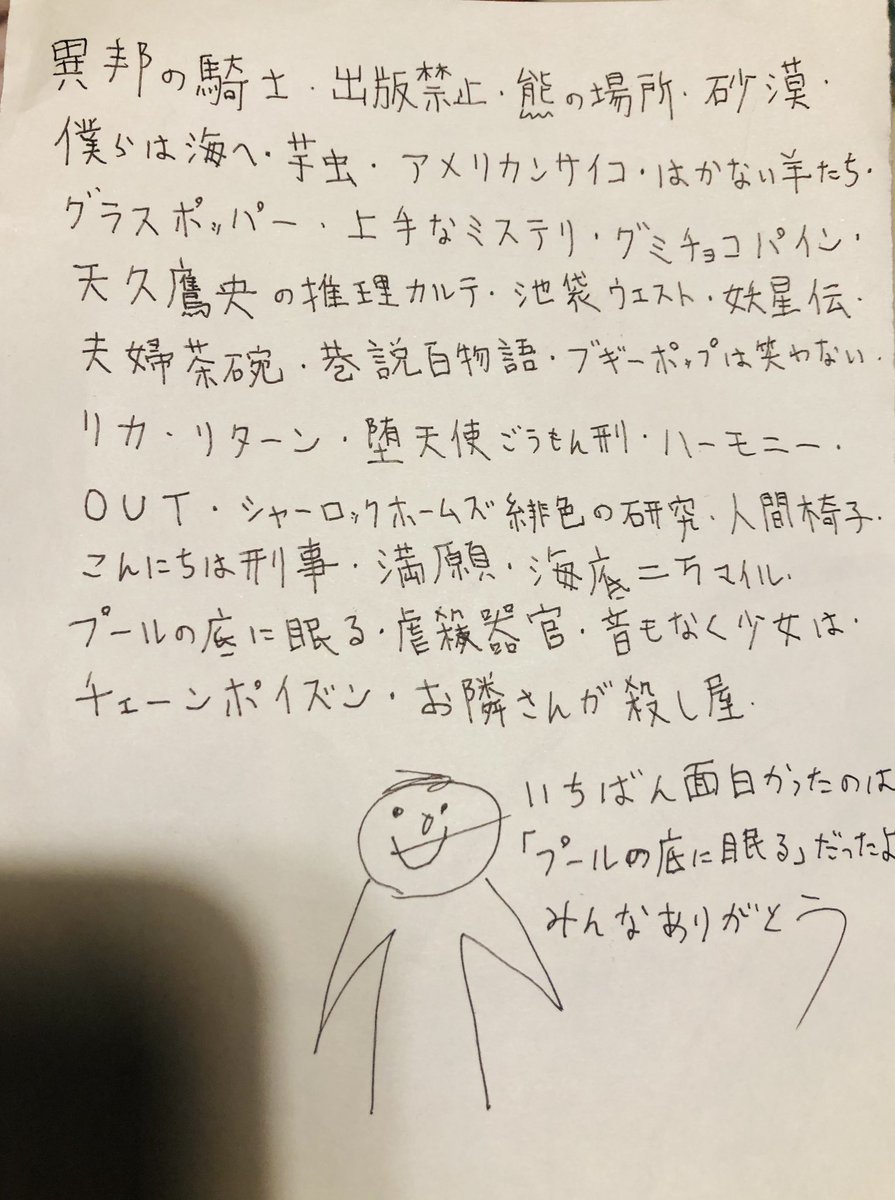 異邦の騎士・出版禁止・熊の場所・砂漠・
僕らは海へ・芋虫・アメリカンサイコ・はかない羊たち・
グラスポッパー・上手なミステリ・グミチョコパイン・
天久鷹央の推理カルテ・池袋ウエスト・妖星伝・
夫婦茶碗・巷説百物語・ブギーポップは笑わない・
リカ・リターン・堕天使ごうもん刑・ハーモニー・
OUT・シャーロックホームズ緋色の研究・人間椅子・
こんにちは刑事・満願・海底二万マイル・
プールの底に眠る・虐殺器官・音もなく少女は・
チェーンポイズン・お隣さんが殺し屋・
いちばん面白かったのは
「プールの底に眠る」だったよ
みんなありがとう